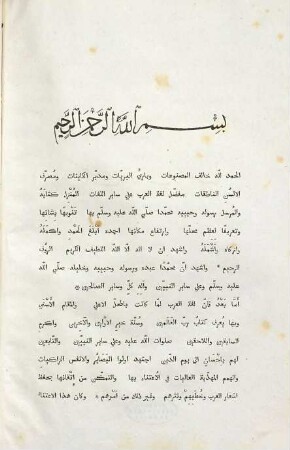 بسم الله الرحمن الرحيم
الحمد لله خالق المصنوعات وبارئ البريّات ومدبّر الكاينات ومصرّف
الالسن الناطقات مفضّل لغة العرب على ساير اللغات المنزل كتابه
والمرسل رسوله وحبيبه محمدا صلّي الله عليه وسلّم بها تنويها بشانها
وتعريفا لعظم محلّها وارتفاع مكانها احمده ابلغ الحمد واكمله
وازكاه واشمله واشهد ان لا اله الّا الله اللطيف الكريم الروف
الرحيم * واشهد انّ محمّدا عبده ورسوله وحبيبه وخليله صلّي الله
عليه وسلّم وعلي ساير النبيّين وآله كلّ وساير الصالحين
أمّا بعد فانّ لغة العرب لمّا كانت بالمحلّ الاعلي والمقام الاسني
وبها يعرف كتاب ربّ العالمين وسنّة خير الاوّلين والآخرين واكرم
السابقين واللاحقين صلوات الله عليه وعلي ساير النبيّين والتابعين
لهم باحسان الي يوم الدين اجتهد اولوا البصاير والانفس الزاكيات
والهمم المهذّبة العاليات في الاعتناء بها والتمكّن من اتقانها بحفظ
اشعار العرب وخطبهم ونثرهم وغير ذلك من امرهم * وكان هذا الاعتناء